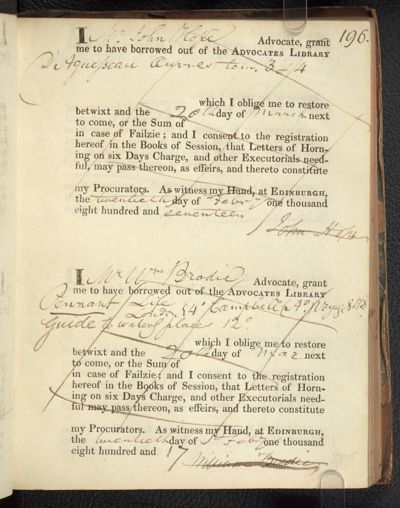 196.
I Mr John Hope Advocate, grant
me to have borrowed out of the ADVOCATES LIBRARY
D'Aguesseau Œuvres tom. 3 & 4
which I oblige me to restore
betwixt and the 20th day of March next
to come, or the Sum of
in case of Failzie; and I consent to the registration
hereof in the Books of Session, that Letters of Horn-
ing on six Days Charge, and other Executorials need-
ful, may pass thereon, as effeirs, and thereto constitute
my Procurators. As witness my Hand, at EDINBURGH,
the twentieth day of Febry one thousand
eight hundred and seventeen
John Hope
I Mr Wm Brodie Advocate, grant
me to have borrowed out of the ADVOCATES LIBRARY
Pennant Life London 4o Campbell
Guide to watering places 12o
which I oblige me to restore
betwixt and the 20th day of Mar next
to come, or the Sum of
in case of Failzie; and I consent to the registration
hereof in the Books of Session, that Letters of Horn-
ing on six Days Charge, and other Executorials need-
ful may pass thereon, as effeirs, and thereto constitute
my Procurators. As witness my Hand, at EDINBURGH,
the twentieth day of Feby one thousand
eight hundred and 17
William Brodie